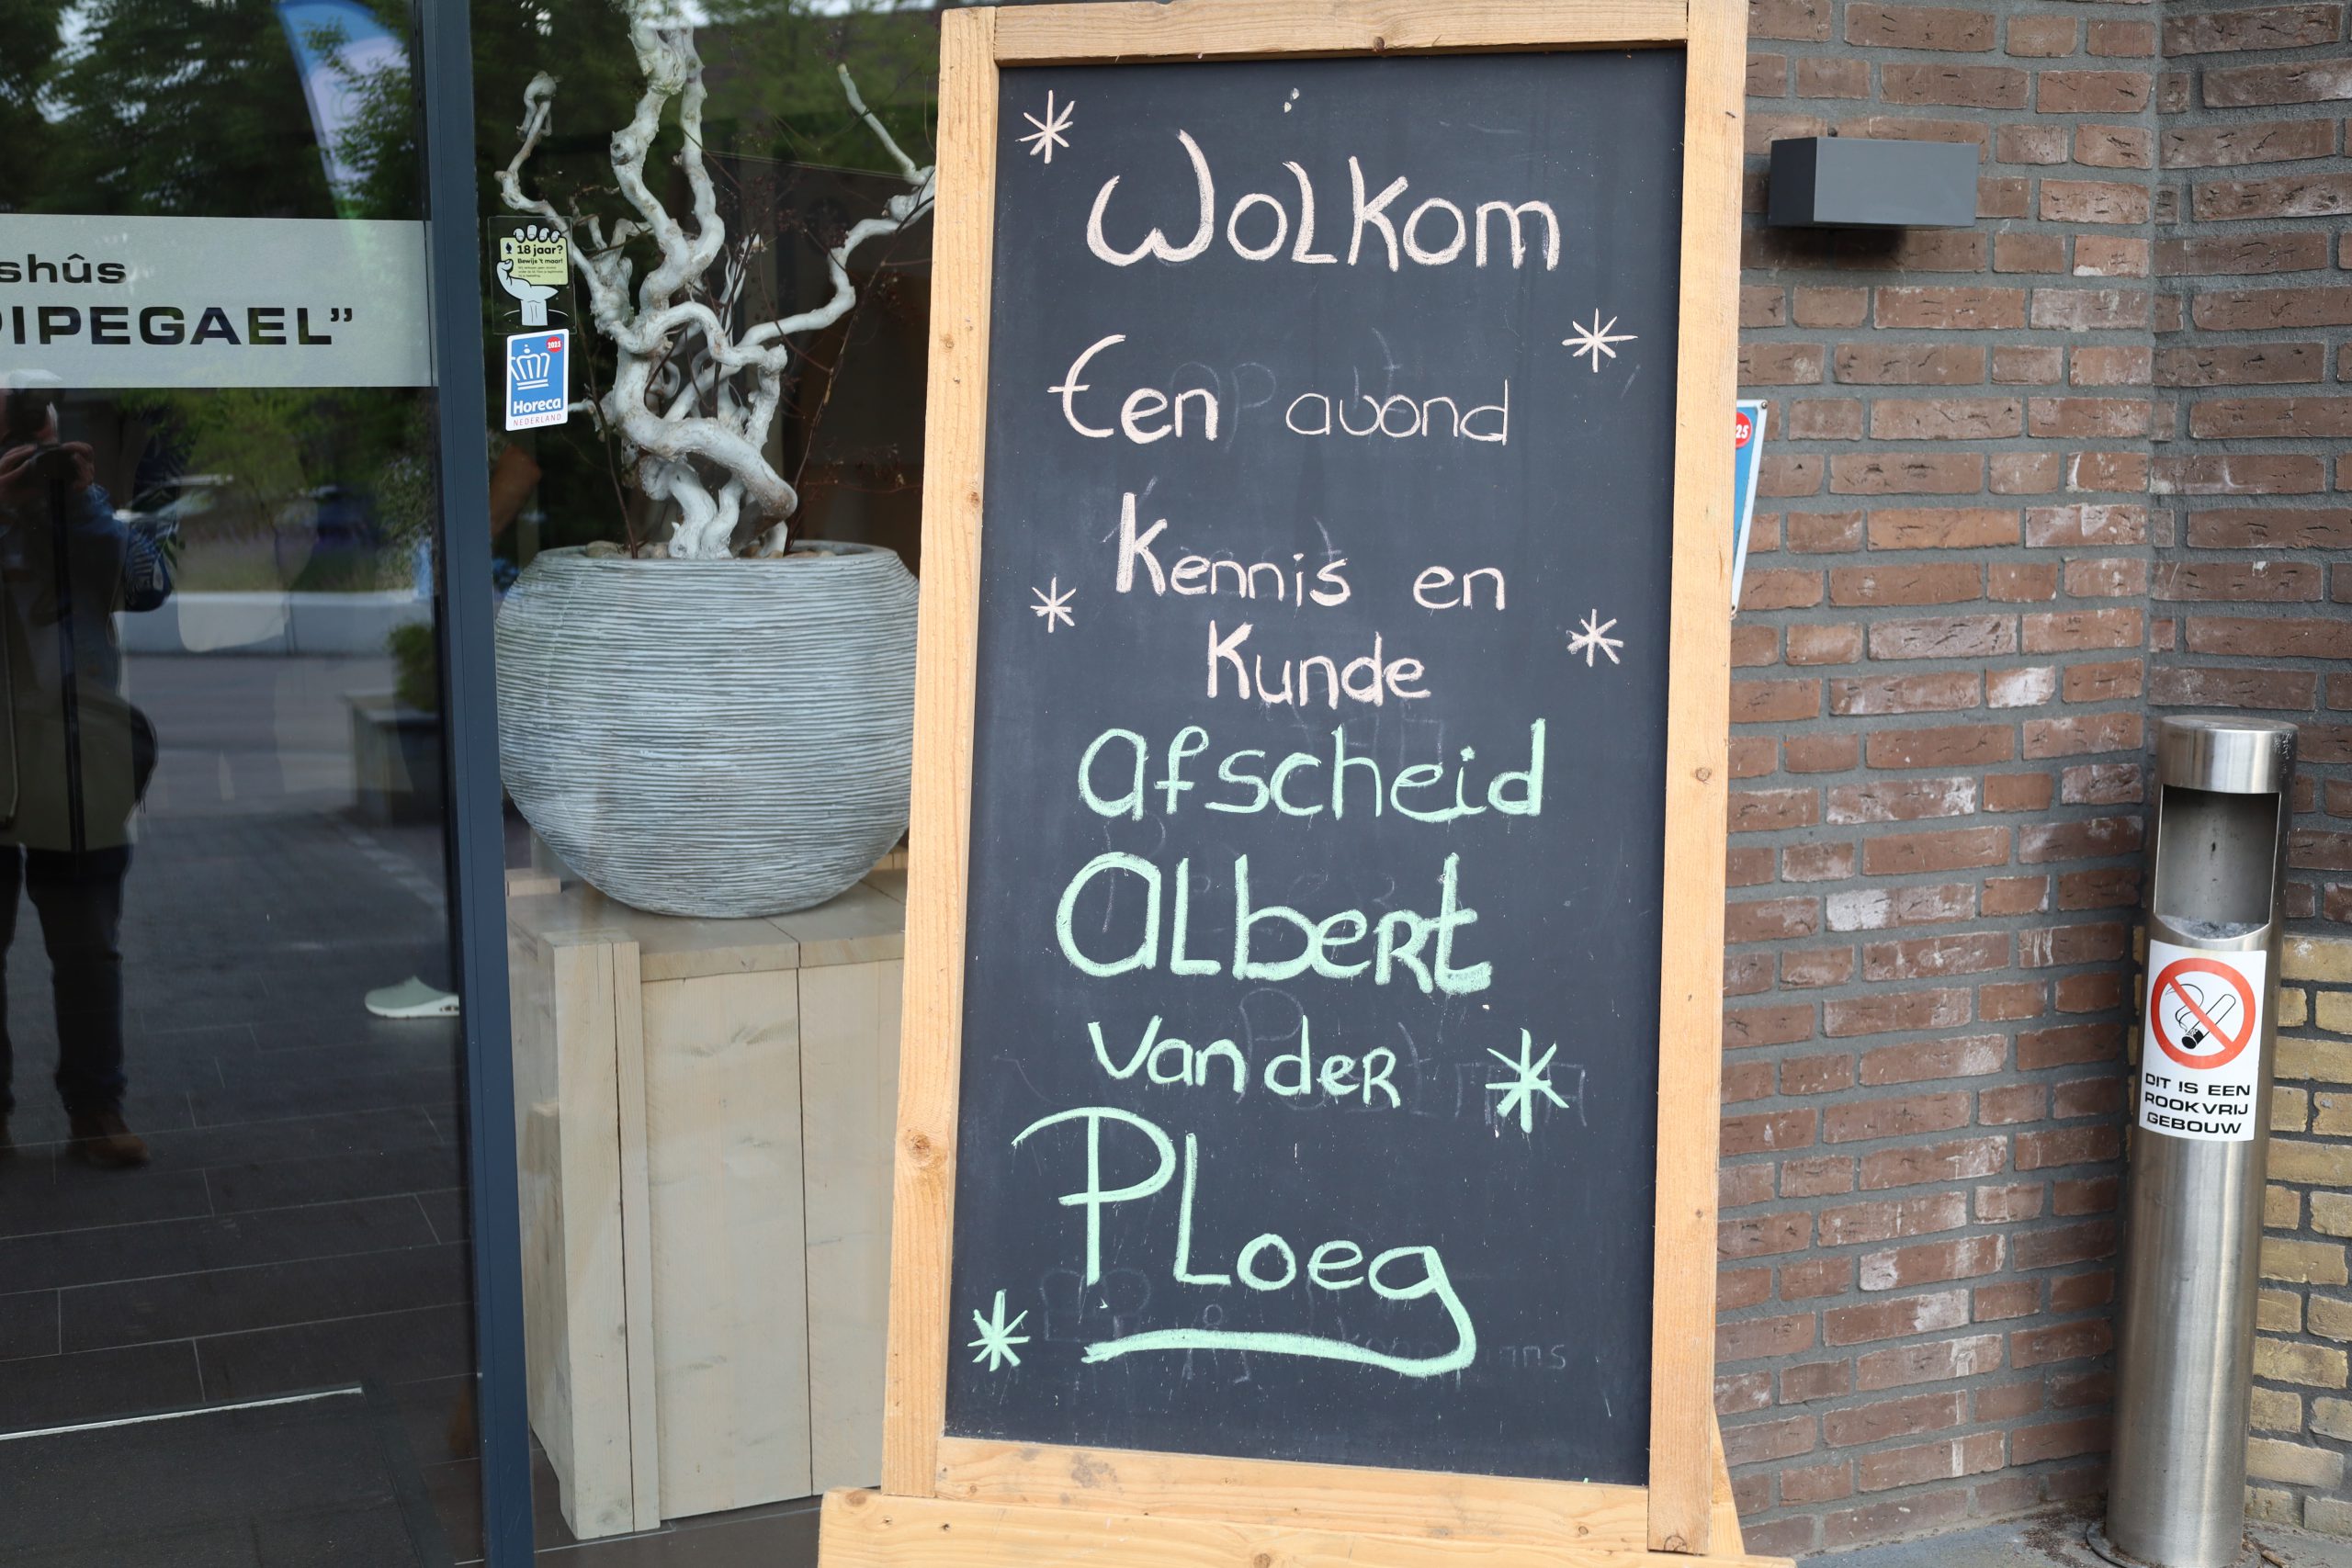 shûs
IPEGAEL”
18 jaar?
Bewijs 't maar!
2025
Horeca
NEDERLAND
Wolkom
Een avond
Kennis en
Kunde
afscheid
Albert
van der
Ploeg
25
DIT IS EEN
ROOKVRIJ
GEBOUW